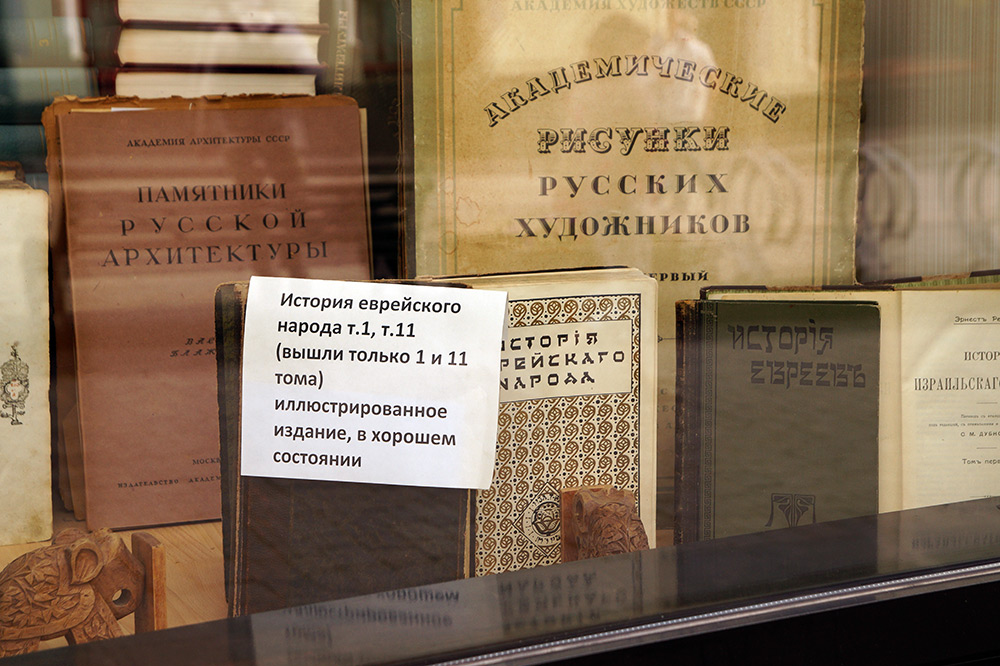 АКАДЕМИЯ ХУДОЖЕСТВ СССР
АКАДЕМИЧЕСКИЕ
РИСУНКИ
РУССКИХ
ХУДОЖНИКОВ
АКАДЕМИЯ АРХИТЕКТУРЫ СССР
ПАМЯТНИКИ
РУССКОЙ
АРХИТЕКТУРЫ
МОСК
ИЗДАТЕЛЬСТВО АКАДЕ
История еврейского
народа т.1, т.11
(вышли только 1 и 11
тома)
иллюстрированное
издание, в хорошем
состоянии
СТОРІЯ
РЕЙСКАГО
НАРОДА
ИСТОРІЯ
ЕВРЕЕВЪ
Эрнестъ Ре
ИСТОР
ИЗРАИЛЬСКАГО
С. М. ДУБНО
Томъ перв